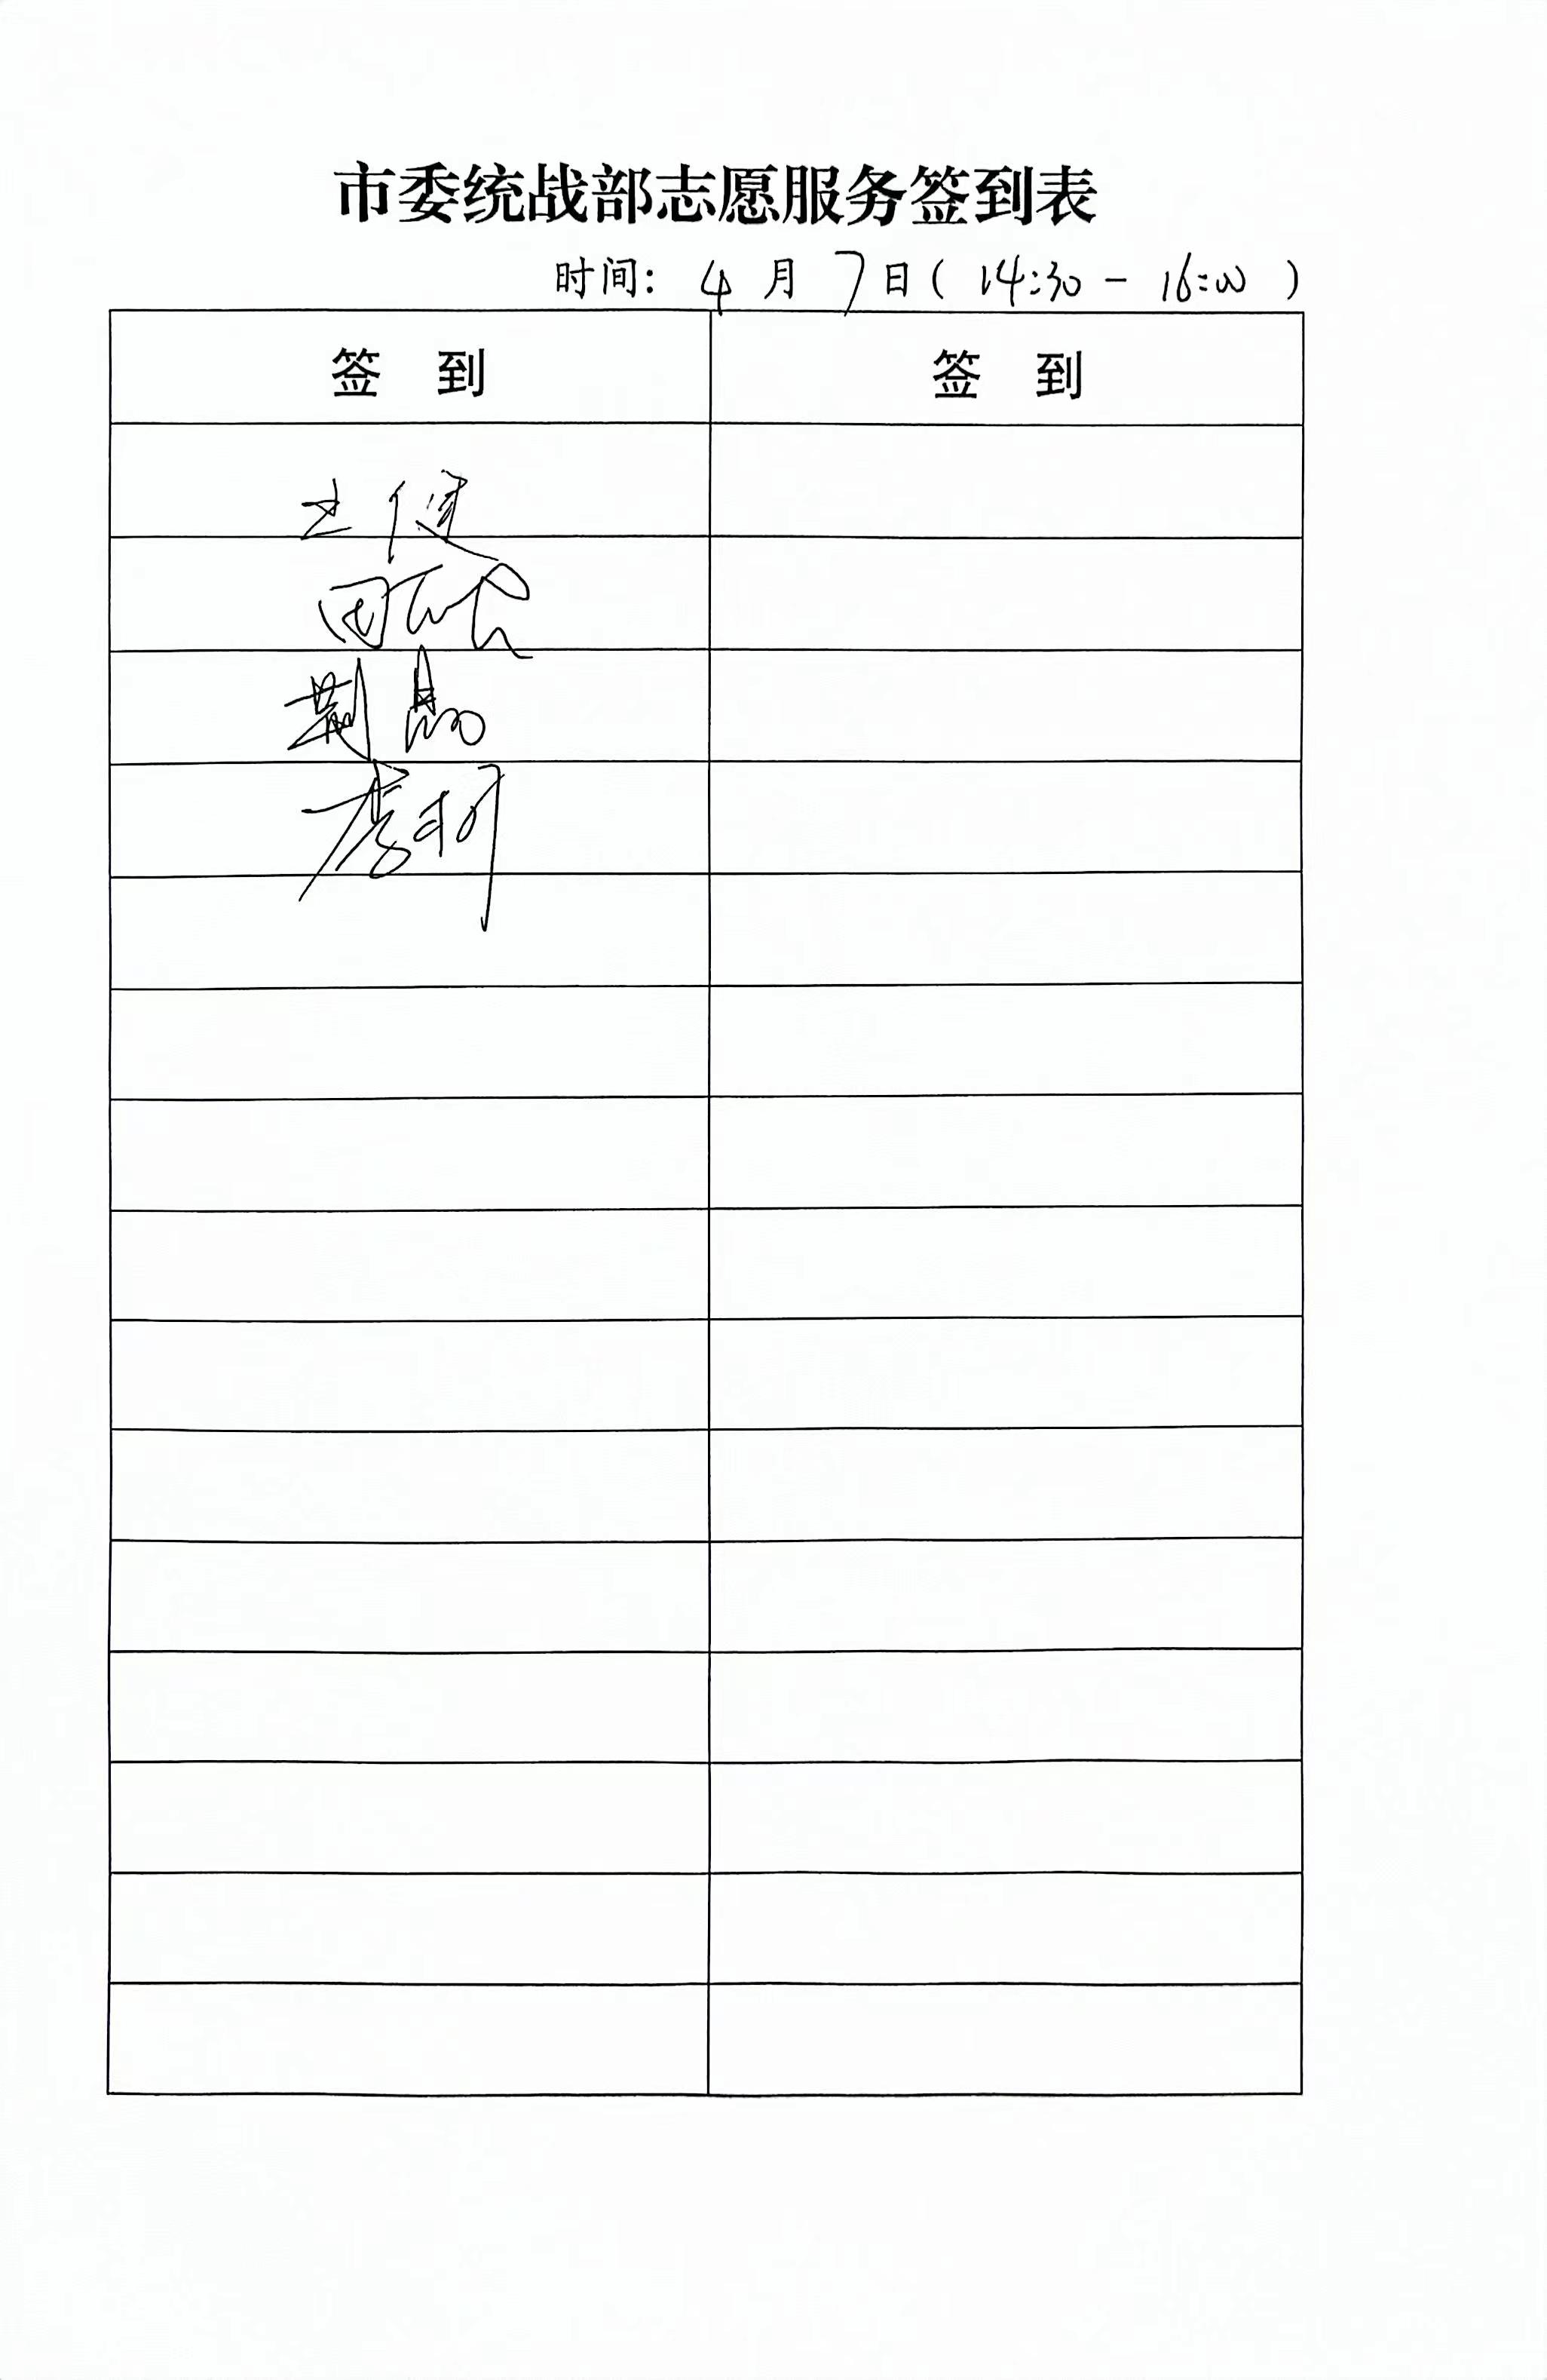 市委统战部志愿服务签到表
时间: 4 月 7 日( 14:30 - 16:00 )
签 到 签 到
王健
荆晶
李轲